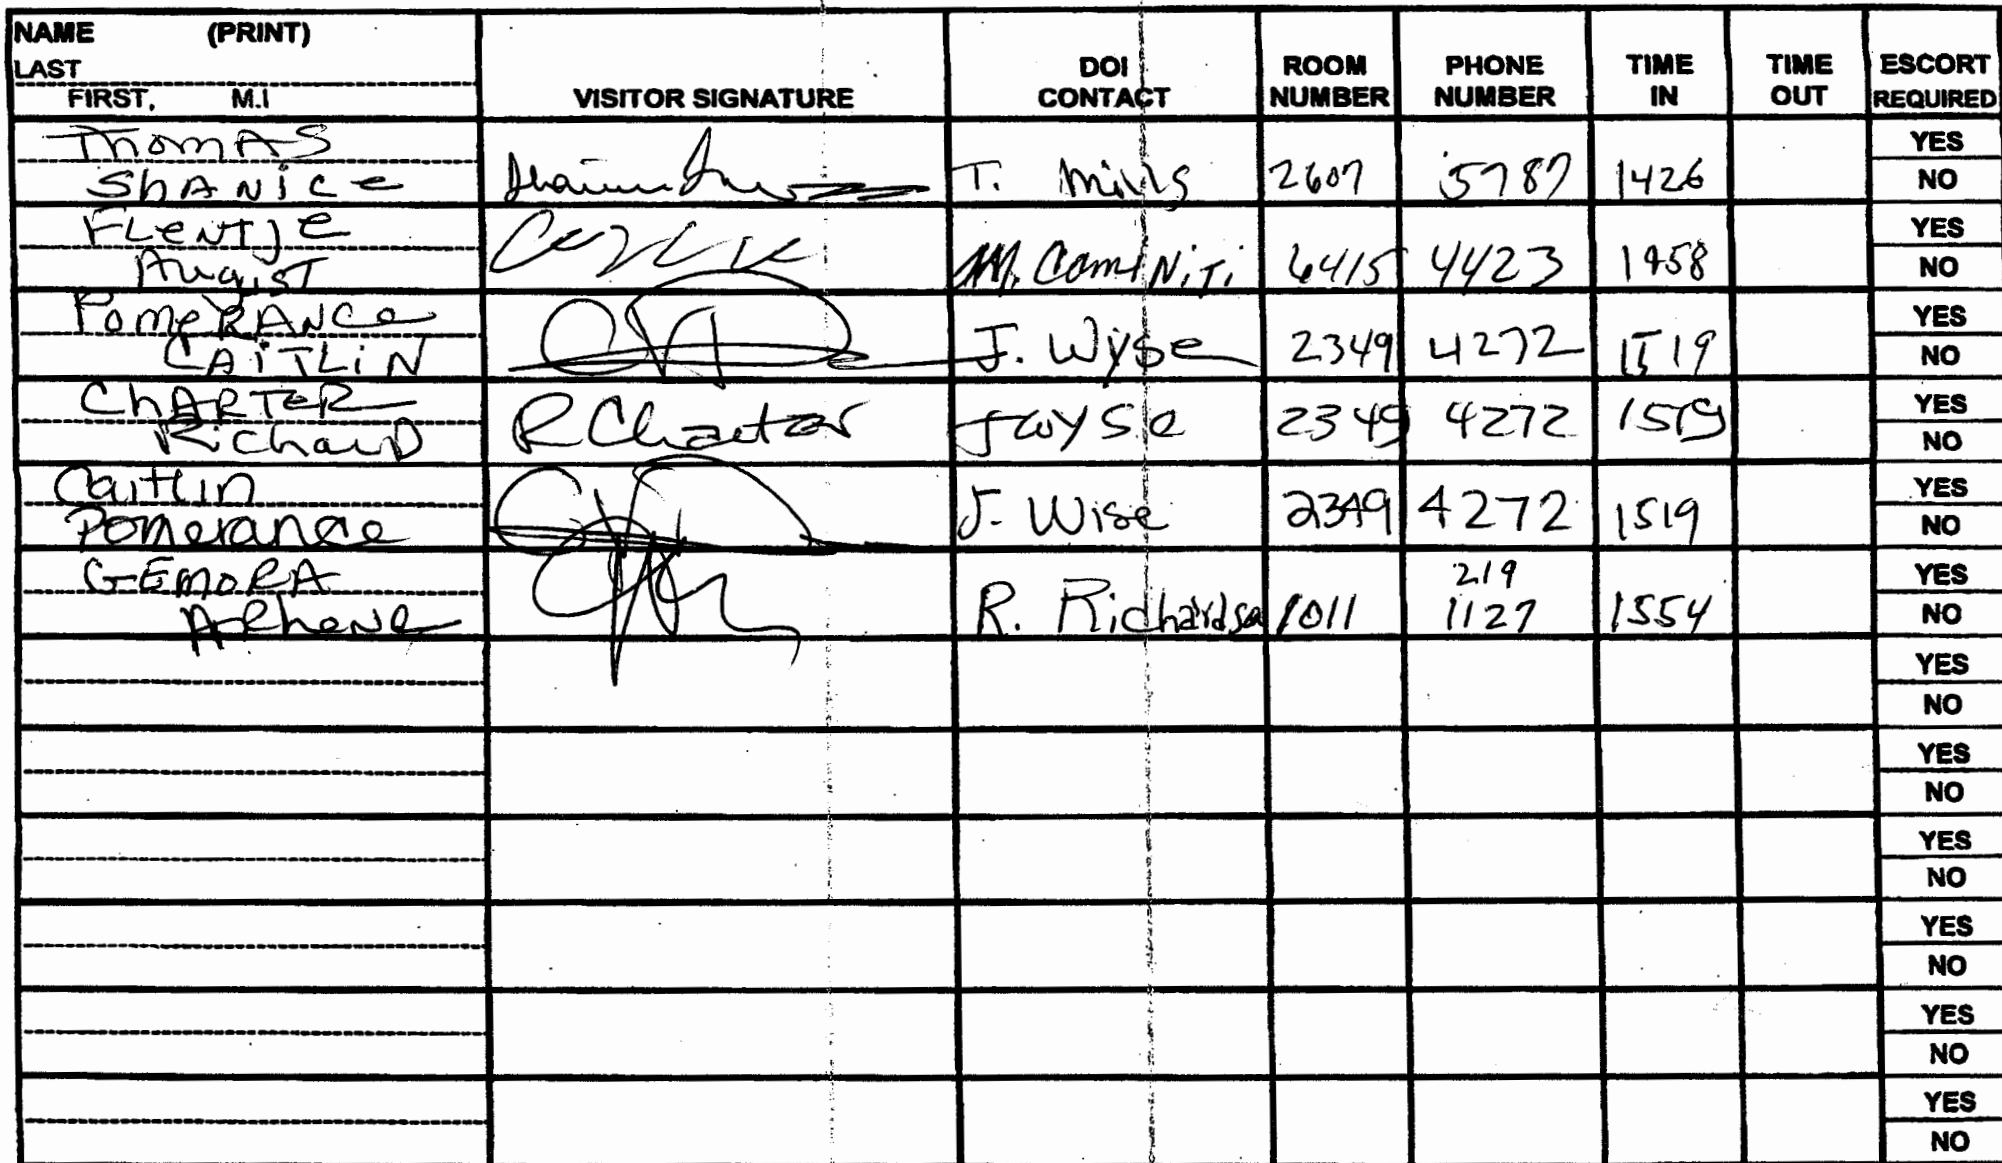 NAME (PRINT)
LAST
FIRST, M.I
VISITOR SIGNATURE
DOI CONTACT
ROOM NUMBER
PHONE NUMBER
TIME IN
TIME OUT
ESCORT REQUIRED
ThomAS
ShANice T. Mills 2607 5787 1426
YES
NO
FLeNTJe
August M. ComiNiTi 6415 4423 1458
YES
NO
PomeRANce
CAiTLiN J. Wyse 2349 4272 1519
YES
NO
ChARTeR
RichaRD RCharter JWYSe 2349 4272 1519
YES
NO
Caitlin
Pomerance J. Wise 2349 4272 1519
YES
NO
GEmoRA 219
R. Richardson 1011 1127 1554
YES
NO
YES
NO
YES
NO
YES
NO
YES
NO
YES
NO
YES
NO